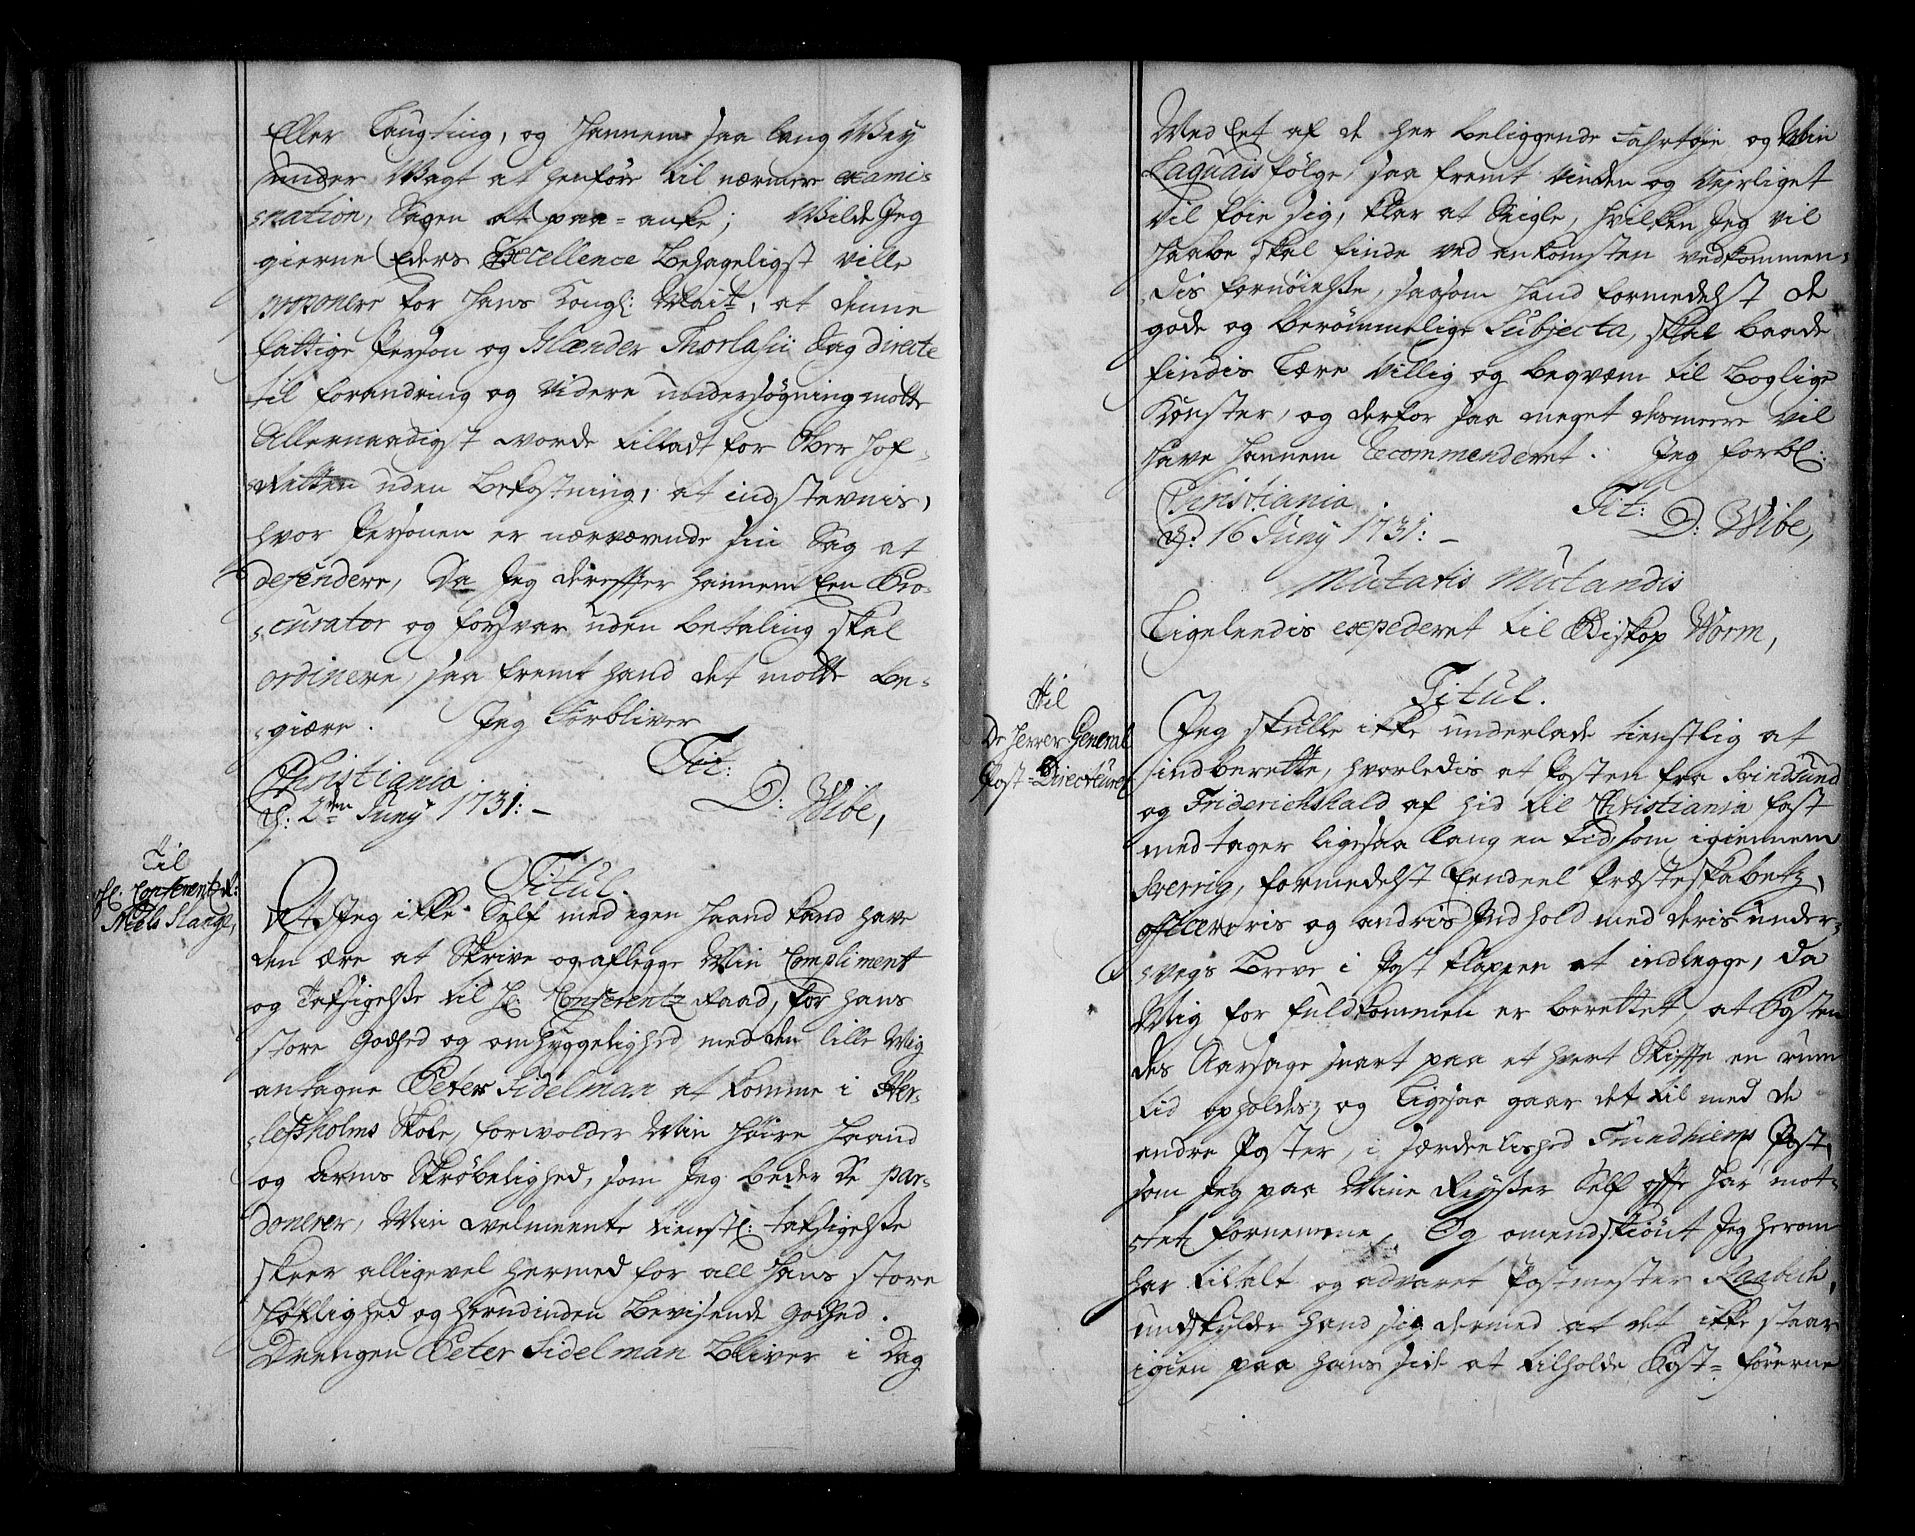 Eller Laugting, og hannem saa lang Wey
under Wagt at henføre til nærmere exami-
-nation, Sagen at paa-anke; Wilde Jeg
gierne Eders Excellence Behageligst ville
proponere for Hans Kongl: Mait:, at denne
fattige Person og Islænder Thorlasii Sag directe
til forandring og videre undersøgning motte
Allernaadigst worde tilladt for Ober Hof-
-Retten uden Bekostning, at indstevnis,
hvor Personen er nærværende sin Sag at
defendere, Da Jeg derefter hannem Een Pro-
-curator og forsvar uden betaling skal
ordinere, saa fremt hand det motte be-
-giære. Jeg Forbliver
Tit:
Christiania
d: 2den Juny 1731:- D: Wibe,
Til
Hr. Conferentz R:
Niels Slange,
Titul.
At Jeg ikke Self med egen Haand kand have
den ære at Skrive og aflegge Min Compliment
og Taksigelsse til Hr Conferentz Raad, for hans
store Godhed og omhyggelighed med den lille Mig
antagne Peter Fidelman at komme i Her-
-lefsholms Skole, forvolder Min Høire Haand
og Arms Skrøbelighed, som Jeg beder De par-
donerer, Min velmeente tienstl: taksigelsse
skeer alligevel hermed for all Hans store
Høflighed og herudinden Bevisende Godhed.
Drengen Peter Fidelman Bliver i Dag
Med Eet af de her beliggende Fahrtøje og Min
Laquais følge, saa fremt vinden og Veirliget
vil føie sig, klar at Seigle, hvilken Jeg vil
haabe skal finde ved ankomsten vedkommen-
-dis fornøielsse, saasom hand formedelst de
gode og berømmelige Subjecta, skal baade
findis Lære villig og beqvæm til Boglige
Konster, og derfor saa meget desmeere vil
have hannem Recommenderet. Jeg forbl:
Christiania Tit:
d: 16 Juny 1731:- D: Wibe,
Mutatis Mutandis
Ligelendis expederet til Biskop Worm,
Til
De Herrer General
Post-Directeurer
Titul.
Jeg skulle ikke underlade tienstlig at
indberette, hvorledis at Posten fra Svindsund
og Friderichshald af hid til Christiania fast
medtager ligesaa lang en tid som igiennem
Sverrig, formedelst Eendeel Præsteskabetz,
officereris og andris Indhold med deris under-
-vegs Breve i Post klappen at indlegge, da
Mig for fuldkommen er berettet, at Posten
des Aarsage snart paa et hvert Skifte en rum
tid opholdes, og Ligesaa gaar det til med de
andre Poster, i særdeelished Trundhiems Post,
som Jeg paa Mine Reyser Self offte har mot-
-tet fornemme, Og omendskiønt Jeg herom
har tiltalt og advaret Postmester Raubich,
undskylder hand sig dermed at det ikke staar
igien paa hans side at tilholde Post-førerne